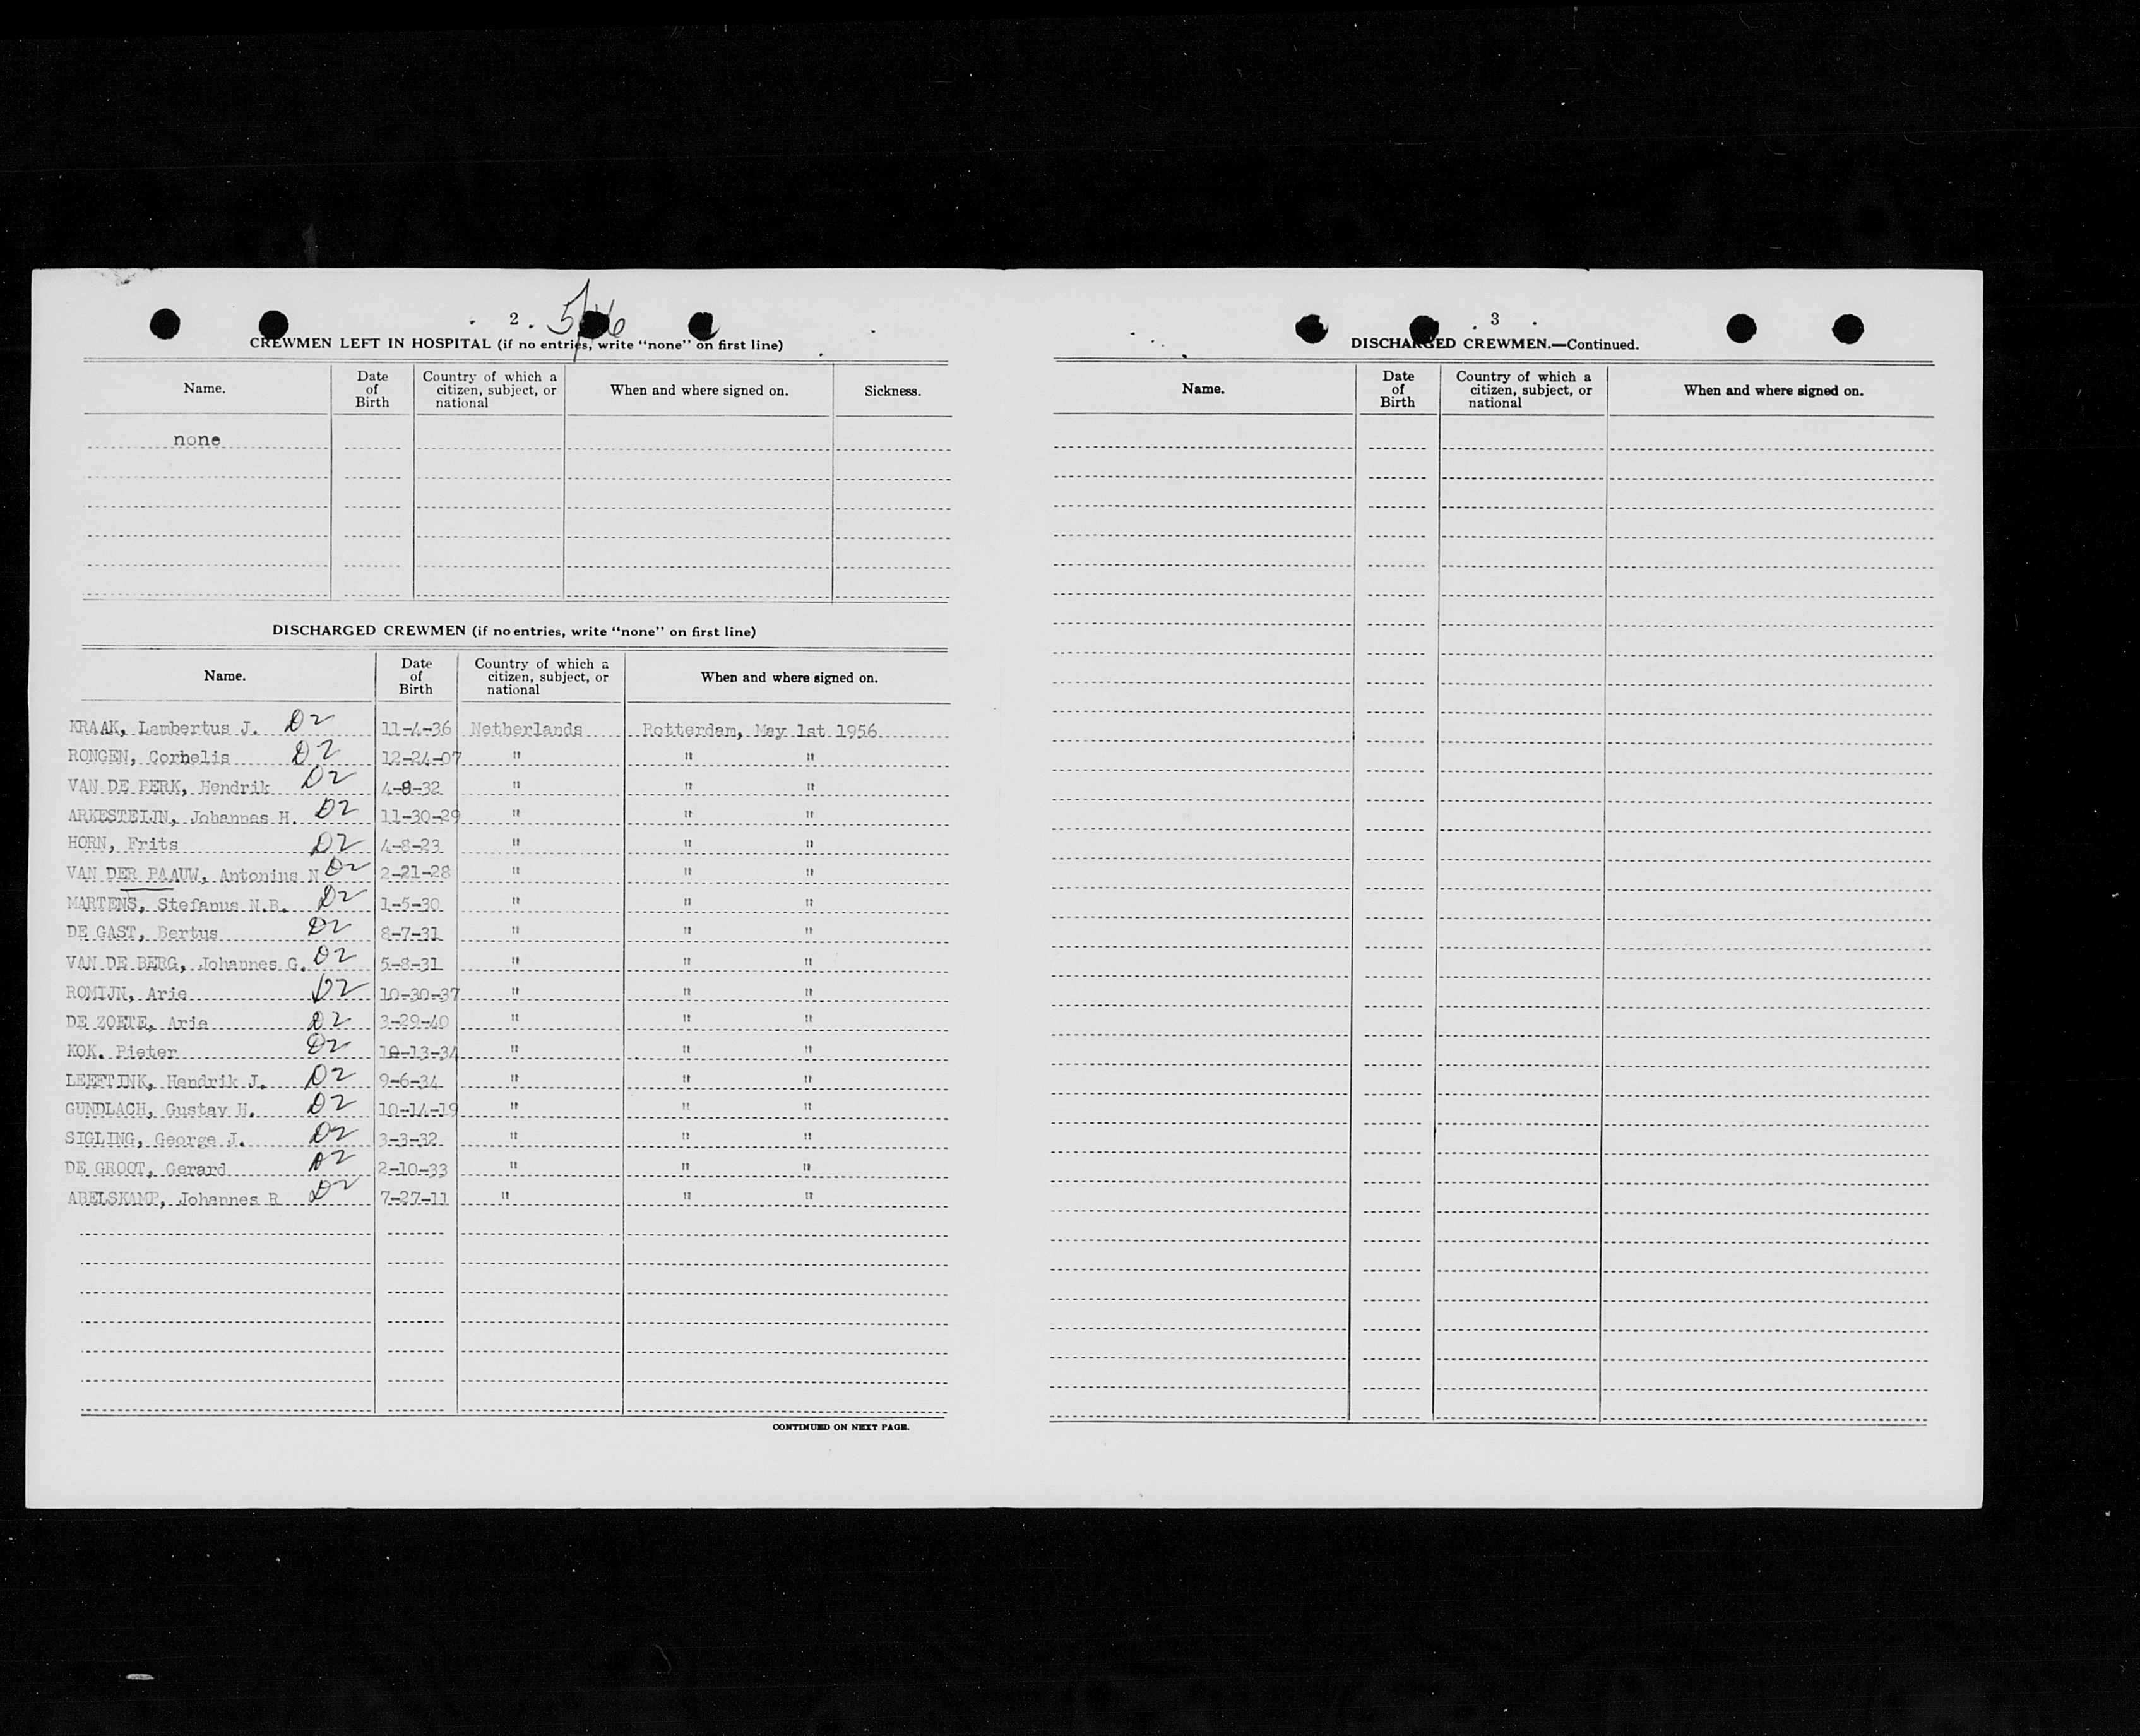 2 .
CREWMEN LEFT IN HOSPITAL (if no entries, write “none” on first line)
Name. Date of Birth Country of which a citizen, subject, or national When and where signed on. Sickness.
none
DISCHARGED CREWMEN (if no entries, write “none” on first line)
Name. Date of Birth Country of which a citizen, subject, or national When and where signed on.
KRAAK, Lambertus J. D2 11-4-36 Netherlands Rotterdam, May 1st 1956
RONGEN, Cornelis D2 12-24-07 " " "
VAN DE PERK, Hendrik D2 4-8-32 " " "
ARKESTEIJN, Johannes H. D2 11-30-29 " " "
HORN, Frits D2 4-8-23 " " "
VAN DER PAAUW, Antonius N D2 2-21-28 " " "
MARTENS, Stefanus N.B. D2 1-5-30 " " "
DE GAST, Bertus D2 8-7-31 " " "
VAN DE BERG, Johannes G. D2 5-8-31 " " "
ROMIJN, Arie D2 10-30-37 " " "
DE ZOETE, Arie D2 3-29-40 " " "
KOK. Pieter D2 10-13-34 " " "
LEEFTINK, Hendrik J. D2 9-6-34 " " "
GUNDLACH, Gustav H. D2 10-14-19 " " "
SIGLING, George J. D2 3-3-32 " " "
DE GROOT, Gerard D2 2-10-33 " " "
ABELSKAMP, Johannes R D2 7-27-11 " " "
CONTINUED ON NEXT PAGE.
3
DISCHARGED CREWMEN.—Continued.
Name. Date of Birth Country of which a citizen, subject, or national When and where signed on.